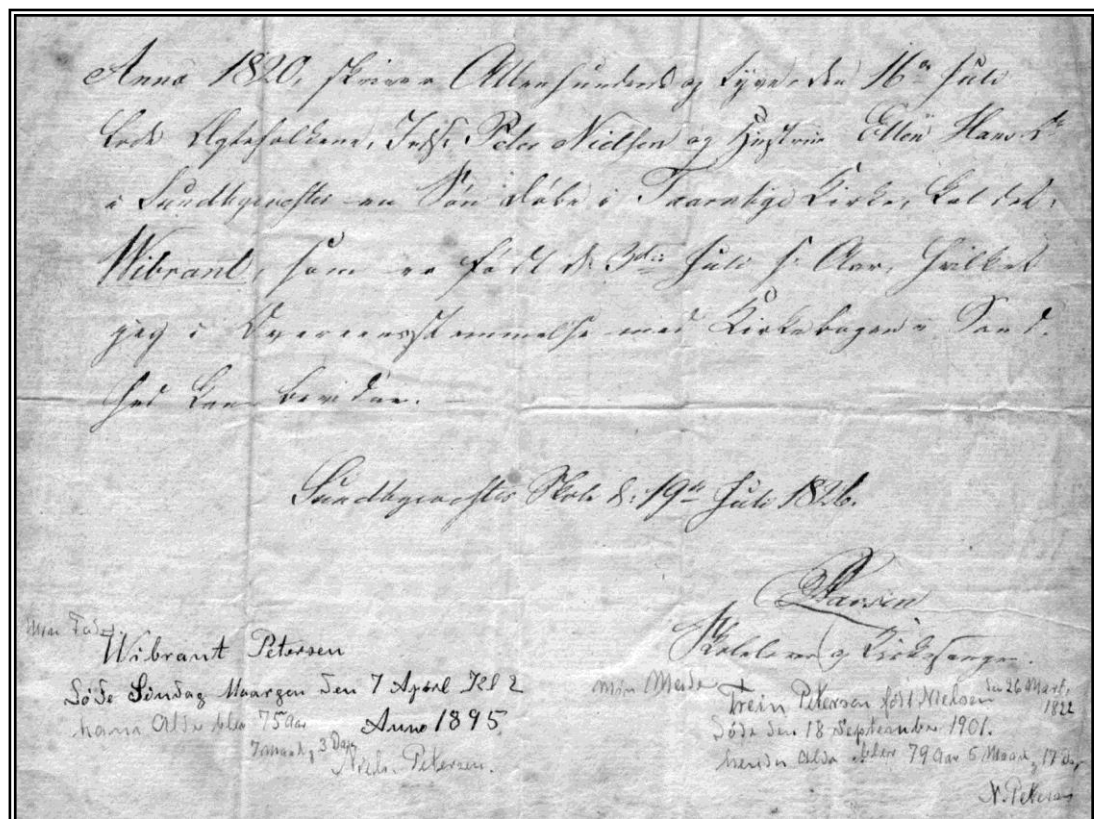 Anno 1820, skriver Attenhundrede og tyve den 16de Juli
lode Ægtefolkene, Peter Nielsen og Hustrue Ellen Hansdr
i Sundbyvester en Søn døbe i Taarnbye Kirke, kaldet
Wibrant, som er født d. 3die Juli s: Aar, hvilket
jeg i Overeensstemmelse med Kirkebogen i Sand-
hed kan bevidne.
Sundbyvester Skole d: 19de Juli 1826.
Larsen
Skolelærer og Kirkesanger.
Min Fader
Wibrant Petersen
Døde Søndag Maargen Den 7 April Kl 2
Anno 1895
hanns Alder blev 75 Aar
3 Dage
Niels Petersen.
Min Moder
Trein Petersen født Nielsen den 26 Mart, 1822
Døde den 18 September 1901.
hendes Alder blev 79 Aar 5 Maan 17 Da
N. Petersen